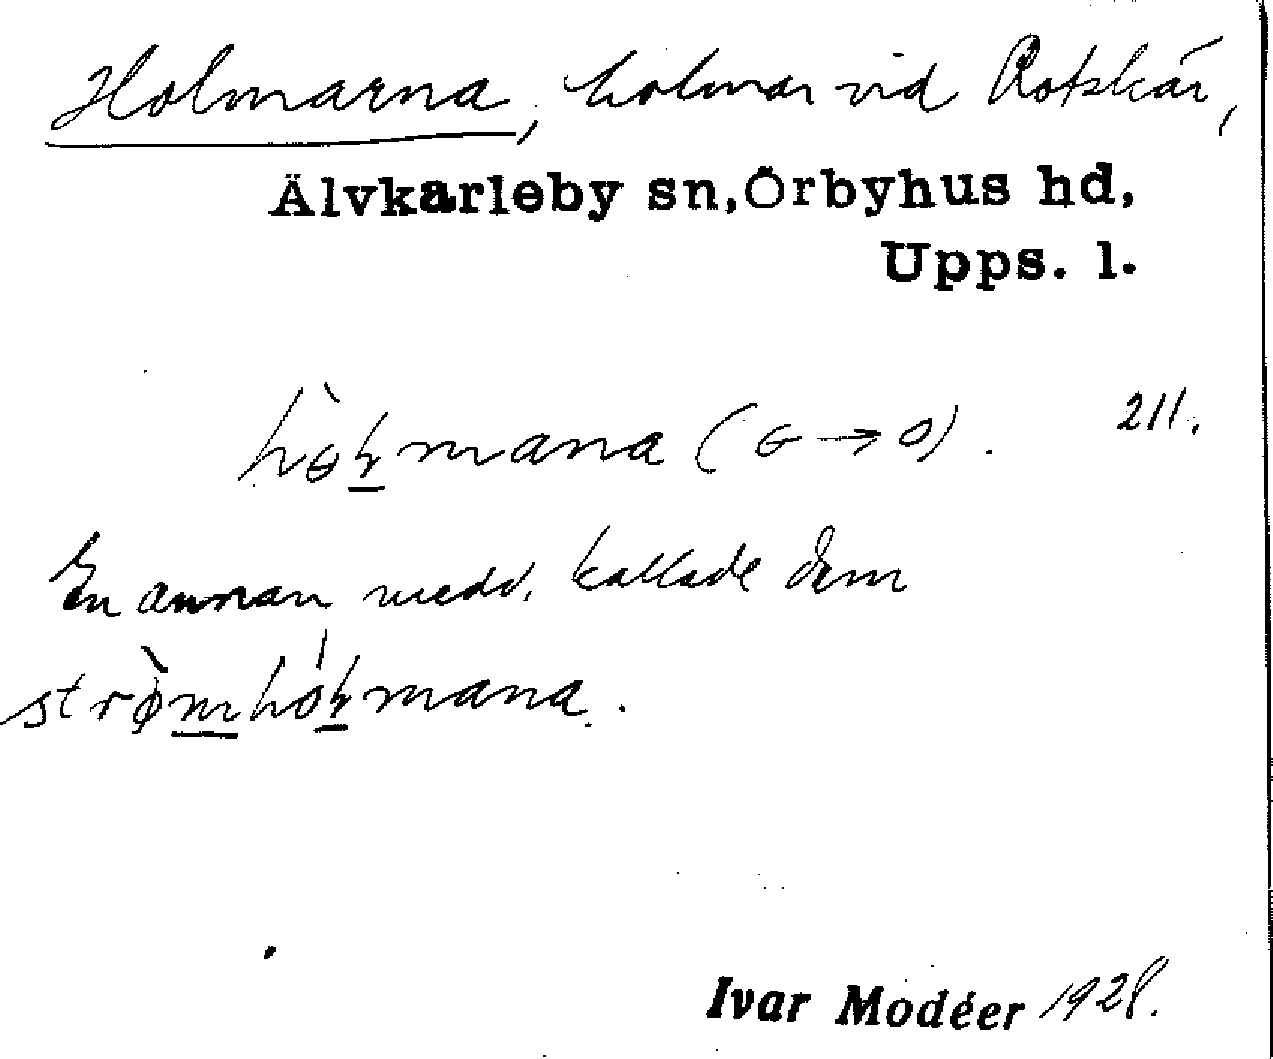 Holmarna, holmar vid Rotskär,
Älvkarleby sn, Örbyhus hd,
Upps. l.
211.
En annan medd. kallade dem
Ivar Modéer 1928.